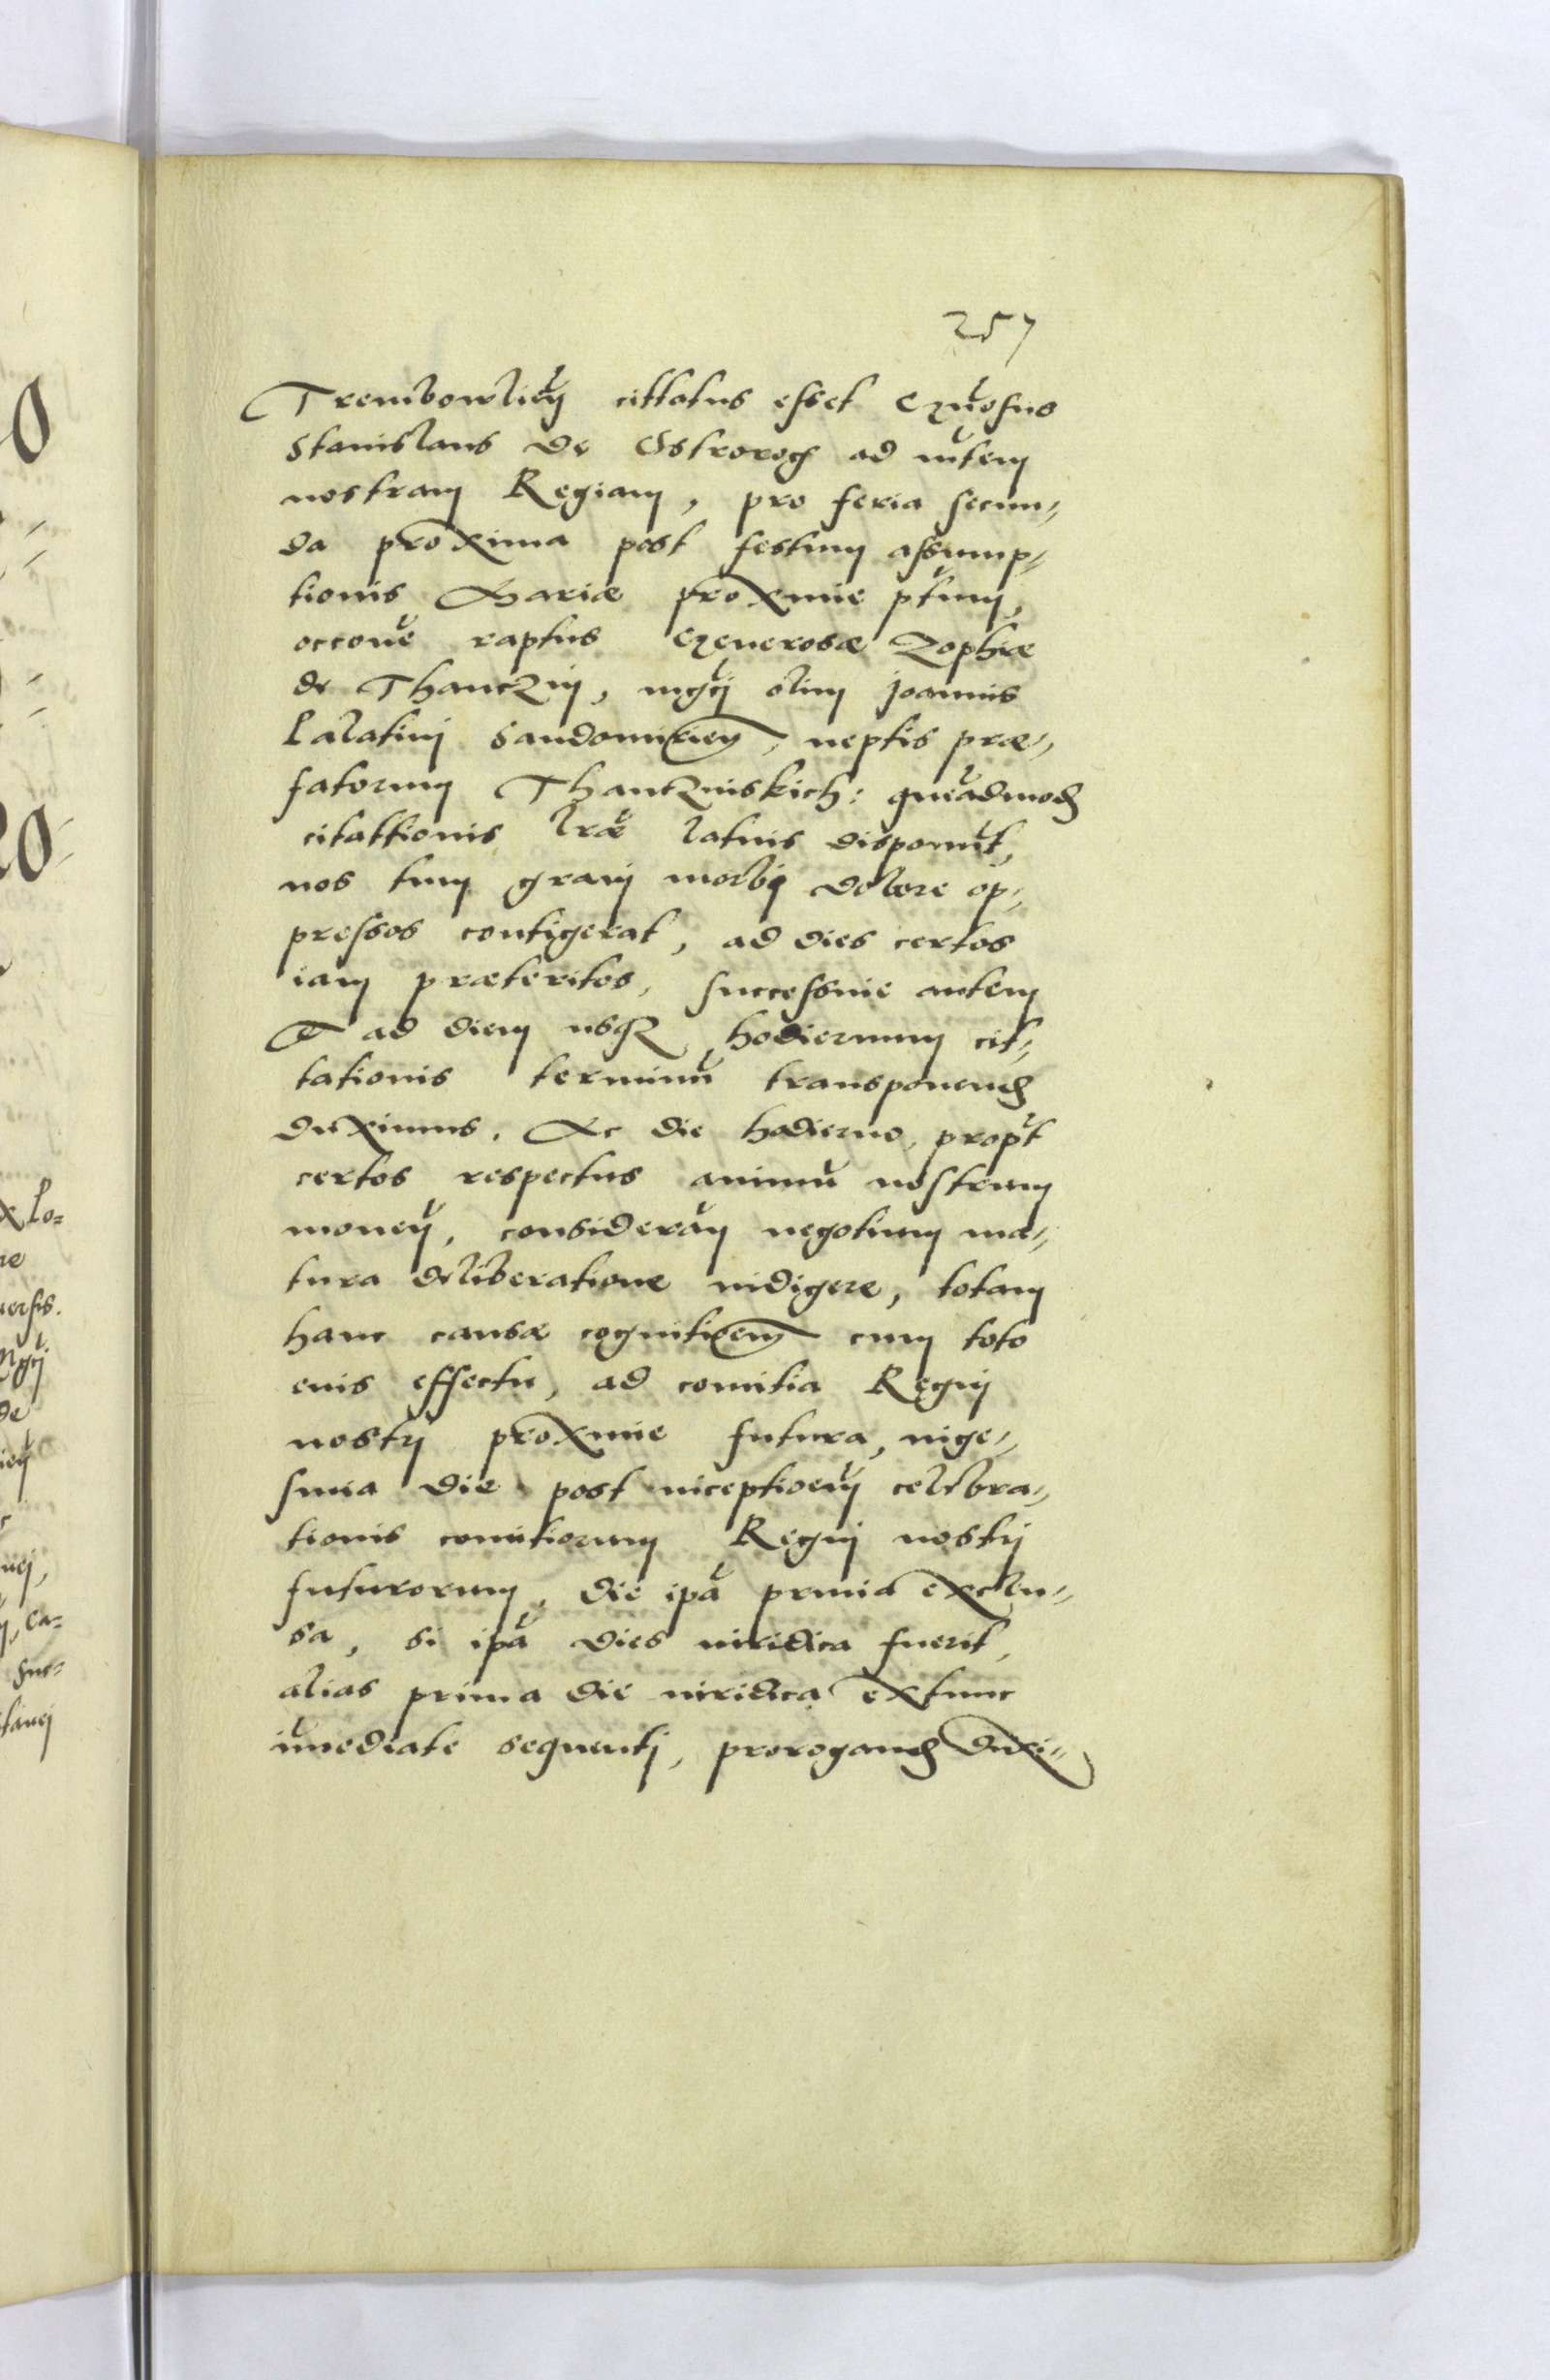 257
Trembowlien̄ cittatus esset Gn̄osus
Stanislaus de Ostrorog ad mtem
nostram Regiam, pro feria secun-
da proxima post festum assump-
tionis Mariæ proxime ptum,
occone raptus Generosæ Zophiæ
de Thanczin, mgci olim Joannis
Palatini Sandomirien, neptis præ-
fatorum Thanczinskich: queadmod
citattionis lræ latius disponut,
nos tum graui morbi dolore op-
pressos contigerat, ad dies certos
iam præteritos, successiue autem
Et ad diem usq hodiernum cit-
tationis terminū transponend
duximus. Ac die hodierno, propt
certos respectus animū nostrum
mouen, consideran negotium ma-
tura deliberatione indigere, totam
hanc causæ cognitioem cum toto
euis effectu, ad comitia Regni
nostri proxime futura, uige-
sima die post inceptioem celebra-
tionis comitiorum Regni nostri
futurorum, die ipa prima exclu-
sa, si ipa dies iuridica fuerit,
alias prima die iuridica extunc
imediate sequenti, prorogand duxi-